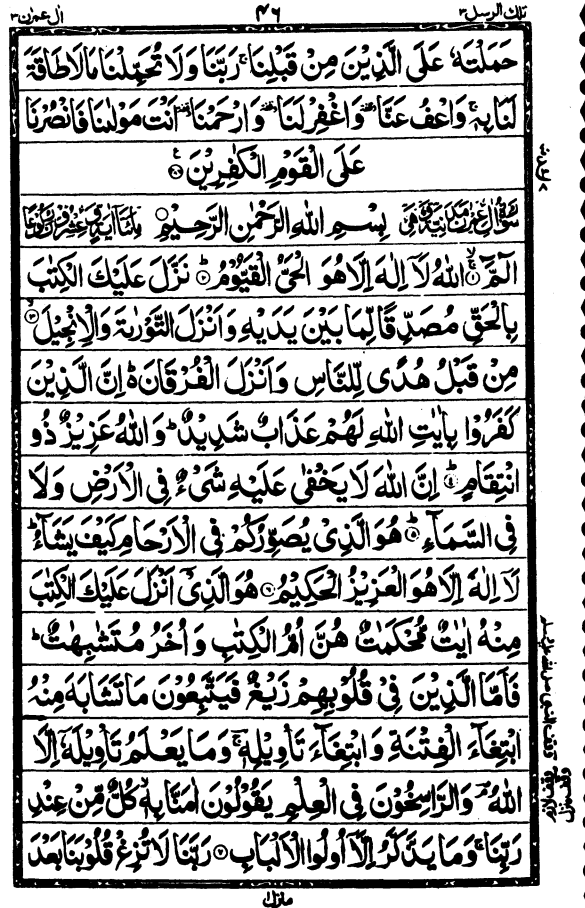 تلك الرسل ۳ ۴۶ اٰل عمرٰن ۳
حَمَلْتَهٗ عَلَى الَّذِيْنَ مِنْ قَبْلِنَا ۚ رَبَّنَا وَلَا تُحَمِّلْنَا مَا لَا طَاقَةَ
لَنَا بِهٖ ۚ وَاعْفُ عَنَّا ۥ وَاغْفِرْ لَنَا ۥ وَارْحَمْنَا ۥ اَنْتَ مَوْلٰىنَا فَانْصُرْنَا
عَلَى الْقَوْمِ الْكٰفِرِيْنَ
بِسْمِ اللّٰهِ الرَّحْمٰنِ الرَّحِيْمِ
الٓمّٓ ۙ﴿۱﴾ اللّٰهُ لَآ اِلٰهَ اِلَّا هُوَ الْحَىُّ الْقَيُّوْمُ ؕ﴿۲﴾ نَزَّلَ عَلَيْكَ الْكِتٰبَ
بِالْحَقِّ مُصَدِّقًا لِّمَا بَيْنَ يَدَيْهِ وَاَنْزَلَ التَّوْرٰىةَ وَالْاِنْجِيْلَ ۙ﴿۳﴾
مِنْ قَبْلُ هُدًى لِّلنَّاسِ وَاَنْزَلَ الْفُرْقَانَ ؕ اِنَّ الَّذِيْنَ
كَفَرُوْا بِاٰيٰتِ اللّٰهِ لَهُمْ عَذَابٌ شَدِيْدٌ ؕ وَاللّٰهُ عَزِيْزٌ ذُو
انْتِقَامٍ ؕ﴿۴﴾ اِنَّ اللّٰهَ لَا يَخْفٰى عَلَيْهِ شَىْءٌ فِى الْاَرْضِ وَلَا
فِى السَّمَآءِ ؕ﴿۵﴾ هُوَ الَّذِىْ يُصَوِّرُكُمْ فِى الْاَرْحَامِ كَيْفَ يَشَآءُ ؕ
لَآ اِلٰهَ اِلَّا هُوَ الْعَزِيْزُ الْحَكِيْمُ ﴿۶﴾ هُوَ الَّذِىْٓ اَنْزَلَ عَلَيْكَ الْكِتٰبَ
مِنْهُ اٰيٰتٌ مُّحْكَمٰتٌ هُنَّ اُمُّ الْكِتٰبِ وَاُخَرُ مُتَشٰبِهٰتٌ ؕ
فَاَمَّا الَّذِيْنَ فِىْ قُلُوْبِهِمْ زَيْغٌ فَيَتَّبِعُوْنَ مَا تَشَابَهَ مِنْهُ
ابْتِغَآءَ الْفِتْنَةِ وَابْتِغَآءَ تَاْوِيْلِهٖ ۚ وَمَا يَعْلَمُ تَاْوِيْلَهٗٓ اِلَّا
اللّٰهُ ۘ وَالرّٰسِخُوْنَ فِى الْعِلْمِ يَقُوْلُوْنَ اٰمَنَّا بِهٖ ۙ كُلٌّ مِّنْ عِنْدِ
رَبِّنَا ۚ وَمَا يَذَّكَّرُ اِلَّآ اُولُوا الْاَلْبَابِ ﴿۷﴾ رَبَّنَا لَا تُزِغْ قُلُوْبَنَا بَعْدَ
منزل ۱